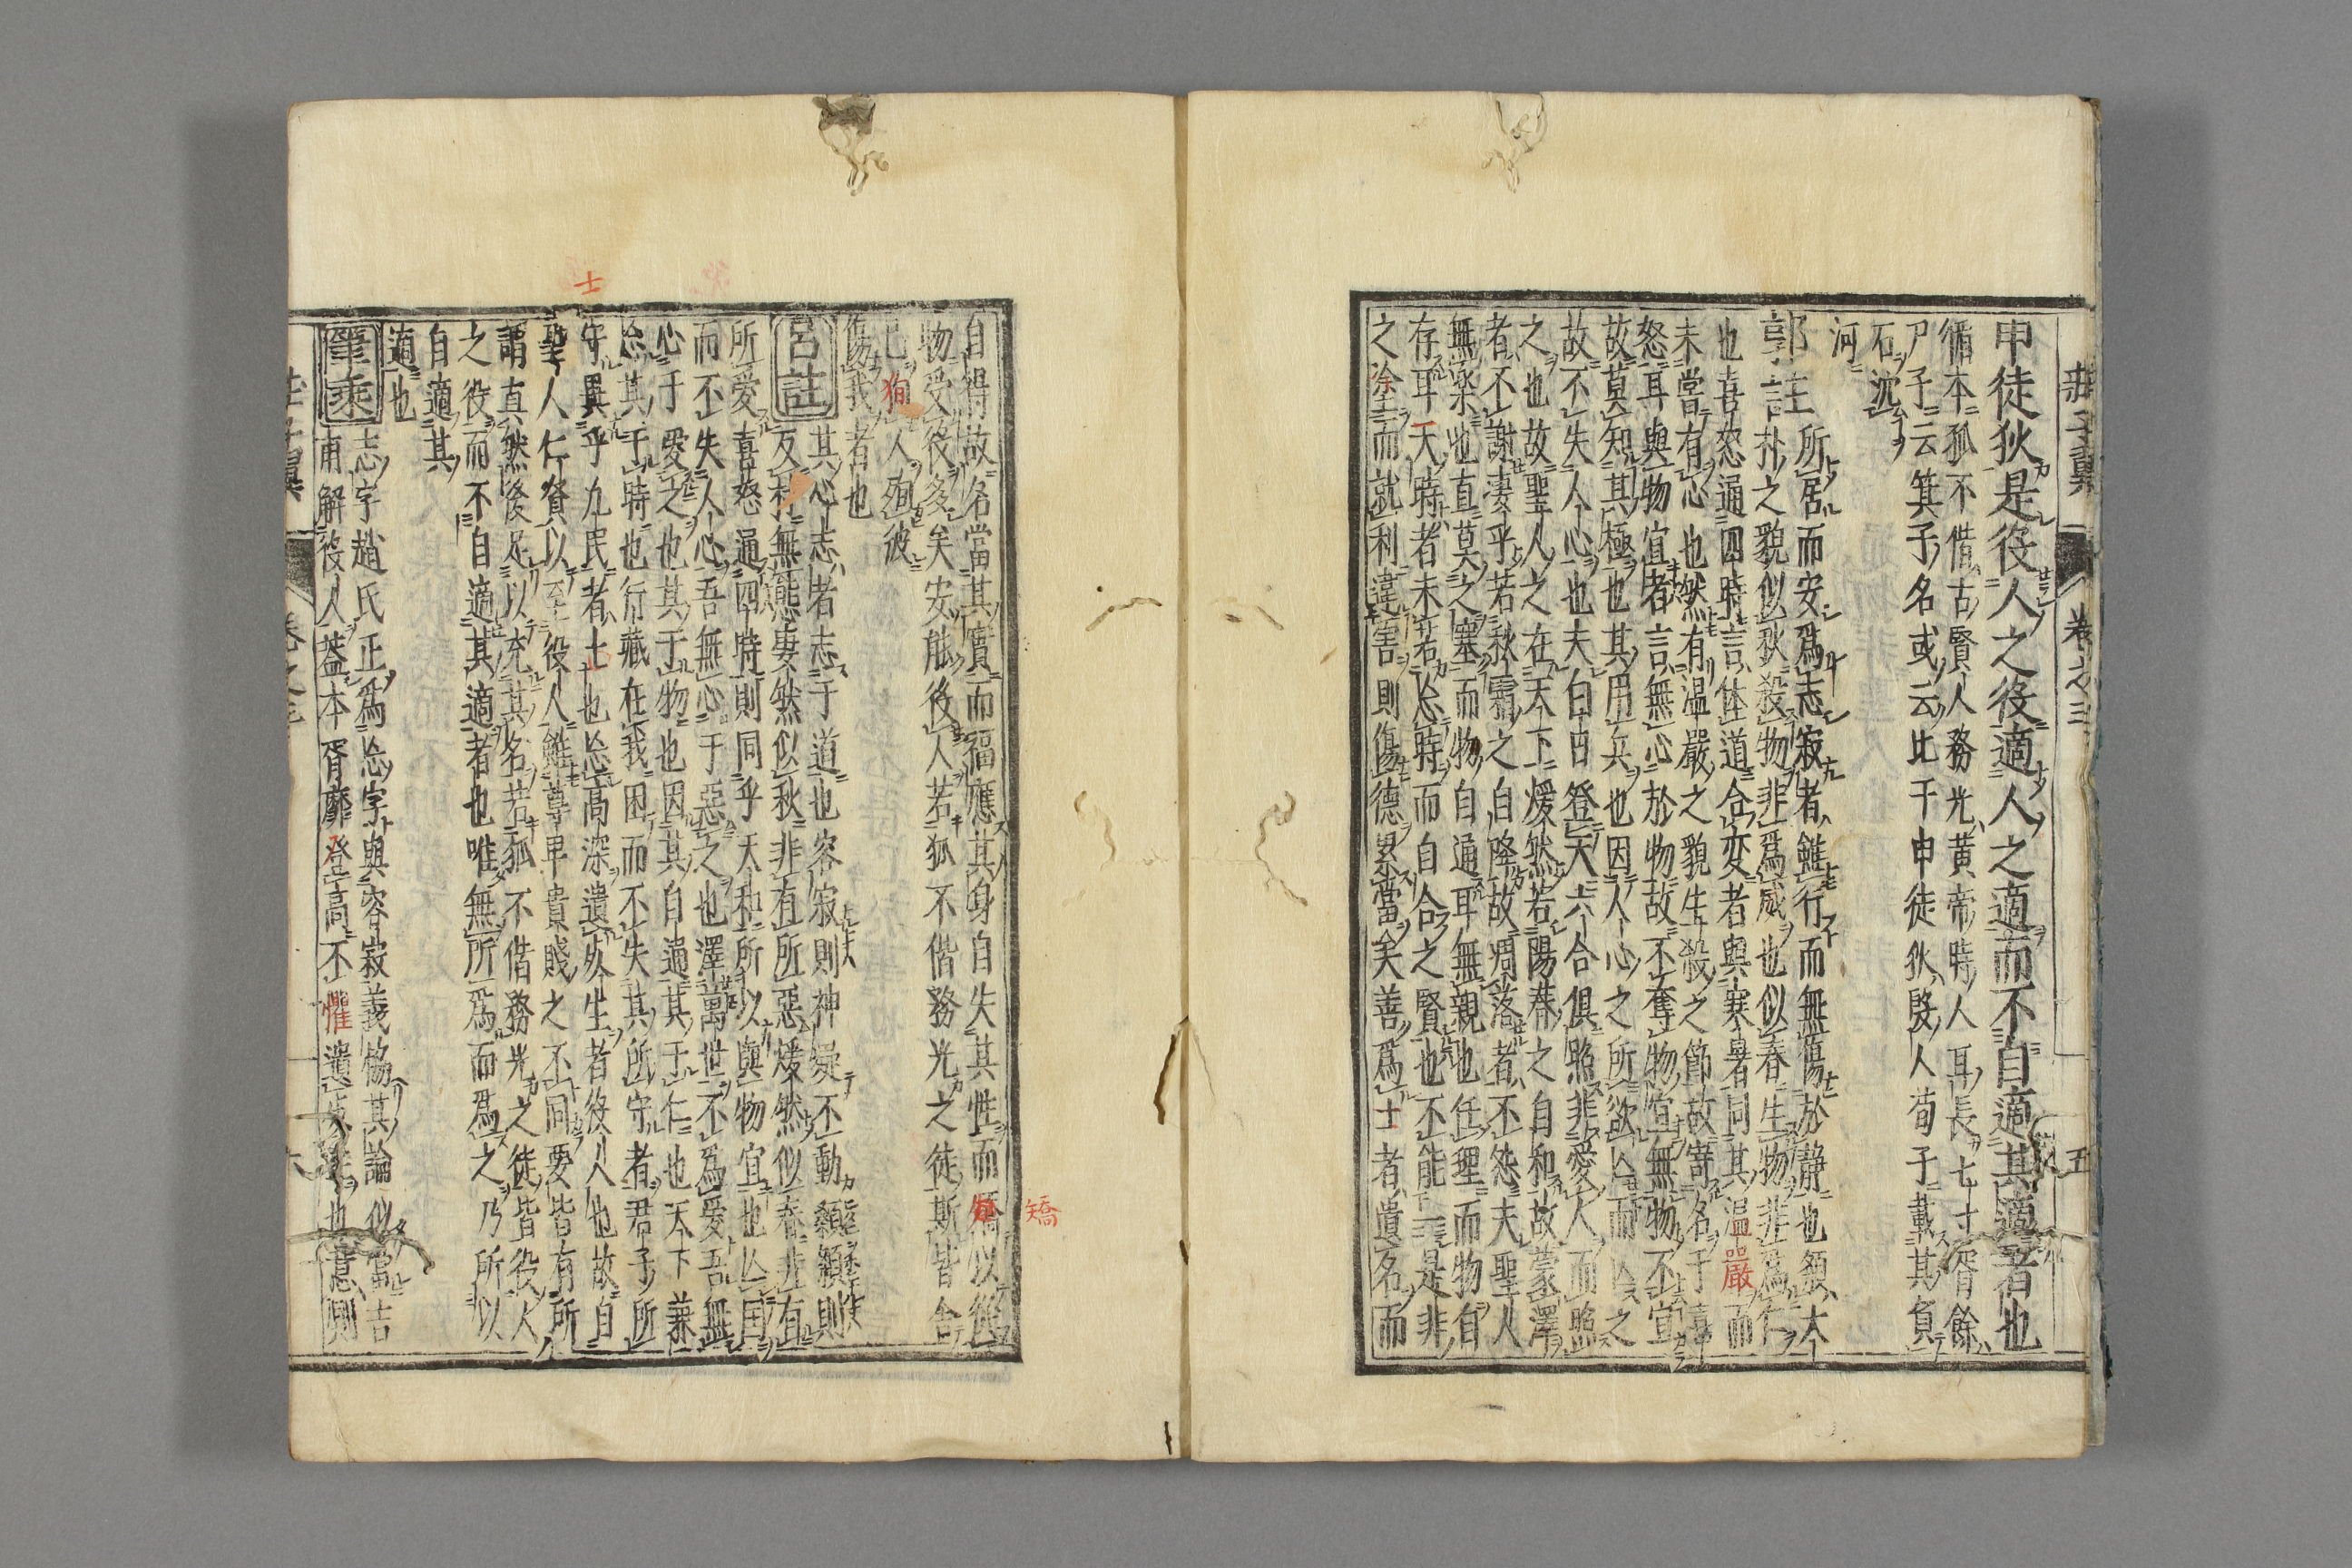 莊子翼 卷之三 五
申徒狄是役人之役適人之適而不自適其適者也
循本狐不偕古賢人務光黃帝時人耳長七寸胥餘
尸子云箕子名或云比干申徒狄殷人荀子載其負
石沈
河
郭註 所居而安爲志寂者雖行而無傷於靜也頯大
朴之貌似秋殺物非爲威也似春生物非爲仁
也喜怒通四時言体道合変者與寒暑同其温嚴而
未嘗有心也然有温嚴之貌生殺之節故寄名于喜
怒耳與物宜者言無心於物故不奪物宜無物不宜
故莫知其極也其用兵也因人心之所欲亾而亾之
故不失人心也夫白日登天六合俱照非愛人而照
之也故聖人之在天下煖然若陽春之自和故蒙澤
者不謝凄乎若秋霜之自降故凋落者不怨夫聖人
無樂也直莫之塞而物自通耳無親也任理而物自
存耳天時者未若忘時而自合之賢也不能一是非
之塗而就利違害則傷德累當矣善爲士者遺名而
自得故名當其實而福應其身自失其性而矯以從
矯
物受役多矣安能役人若狐不偕務光之徒斯皆舍
己狥人殉彼
傷我者也
呂註 其心志者志于道也容寂則神凝不動顙頯則
反朴無態凄然似秋非有所惡煖然似春非有
所愛喜怒通四時則同乎太和所以與物宜也亾国
而不失人心吾無心于惡之也澤萬世不爲愛吾無
心于愛之也其于物也因其自通其于仁也天下兼
忘其于時也行藏在我困而不失其所守者君子所
士
守異乎九民者士也忘高深遺死生者役人也故自
聖人仁賢以至役人雖尊卑貴賤之不同要皆有所
謂真然後足以充其名若狐不偕務光之徒皆役人
之役而不自適其適者也唯無所爲而爲之乃所以
自適其
適也
筆乘 志字趙氏正爲忘字與容寂義恊其論似當吉
甫解役人葢本胥靡登高不懼遺死生也意則
莊子翼 卷之三 六